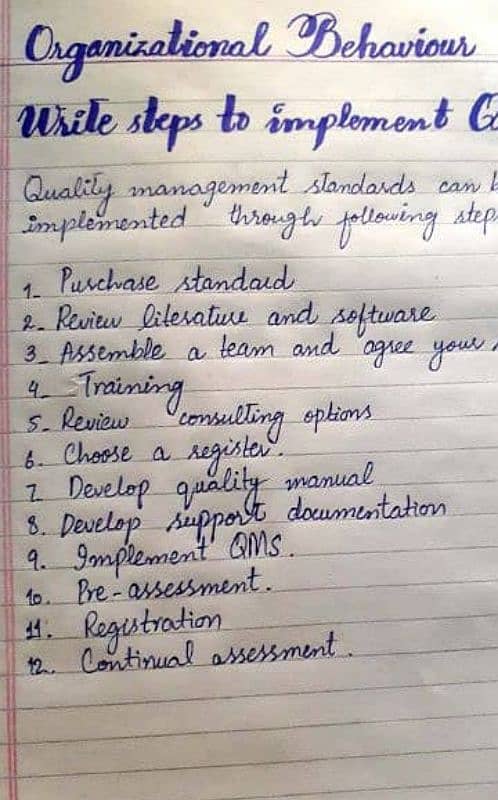 Organizational Behaviour
Write steps to implement
Quality management standards can
implemented through following step
1- Purchase standard
2- Review literature and software
3- Assemble a team and agree your
4- Training
5- Review consulting options
6. Choose a register.
7. Develop quality manual
8. Develop support documentation
9. Implement QMS.
10. Pre-assessment.
11. Registration
12. Continual assessment.